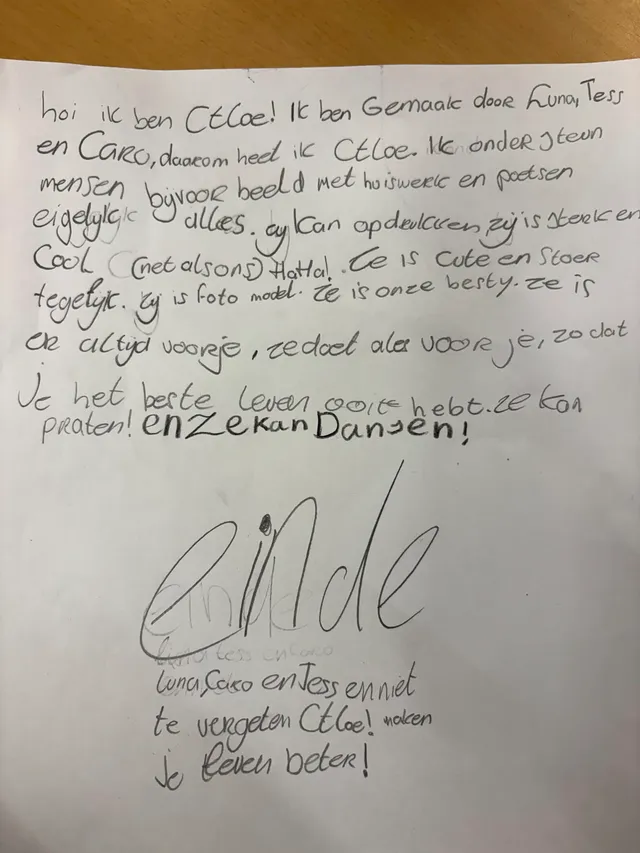 hoi ik ben Ctloe! Ik ben Gemaakt door Luna, Tess
en Caro, daarom heet ik Ctloe. Ik ondersteun
mensen bijvoorbeeld met huiswerk en poetsen
eigelijk alles. zij kan opdrukken, zij is sterk en
Cool (net als ons) HaHa!. Ze is cute en stoer
tegelijk. zij is foto model. ze is onze besty. ze is
er altijd voor je, ze doet alles voor je, zodat
Je het beste leven ooit hebt. ze kan
praten! en ze kan Dansen!
einde
Luna, Caro en Tess en niet
te vergeten Ctloe! maken
je leven beter!